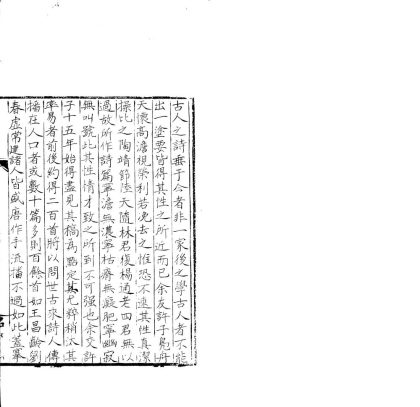 古人之詩垂于今者非一家後之學古人者不能
出一塗要皆得其性之所近而已余友許子堯丹
天懷高澹視榮利若浼去之惟恐不速其性真潔
操比之陶靖節陸天隨林君復楊通老四君無以
過故所作詩篇寧澹無濃寧枯瘠無癡肥寧幽寂
無叫號此其性情才致之所到不可強也余交許
子十五年始得盡見其稿為點定其尤粹稍汰其
率易者前後約得二百首將以問世古來詩人傳
播在人口者或數十篇多則百餘首如王昌齡劉
春虛常建諸人皆盛唐作手流播不過如此蓋寧